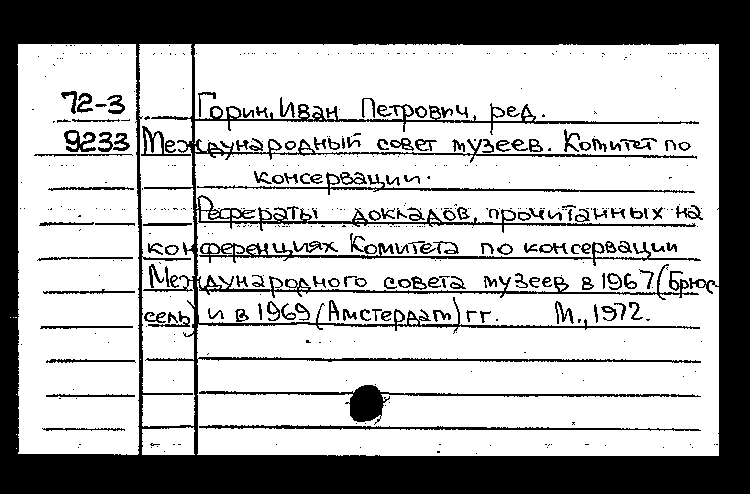 72-3 Горин, Иван Петрович, ред.
9233 Международный совет музеев. Комитет по
консервации.
Рефераты докладов, прочитанных на
конференциях Комитета по консервации
Международного совета музеев в 1967 (Брюс-
сель) и в 1969 (Амстердам) гг. М., 1972.